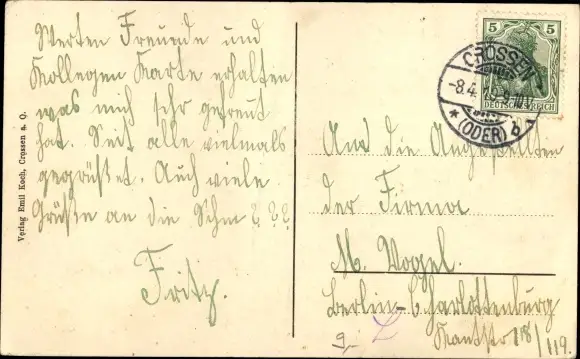 Werten Freunde und
Kollegen Karte erhalten
was mich sehr gefreut
hat. Seid alle vielmals
gegrüßt. Auch viele
Grüße an die
Fritz.
Verlag Emil Koch, Crossen a. O.
5 5
DEUTSCHES REICH
CROSSEN
-8.4.
* (ODER) b
An die Angestellten
der Firma
M. Vogel.
Berlin-Charlottenburg
118/119.
9,-